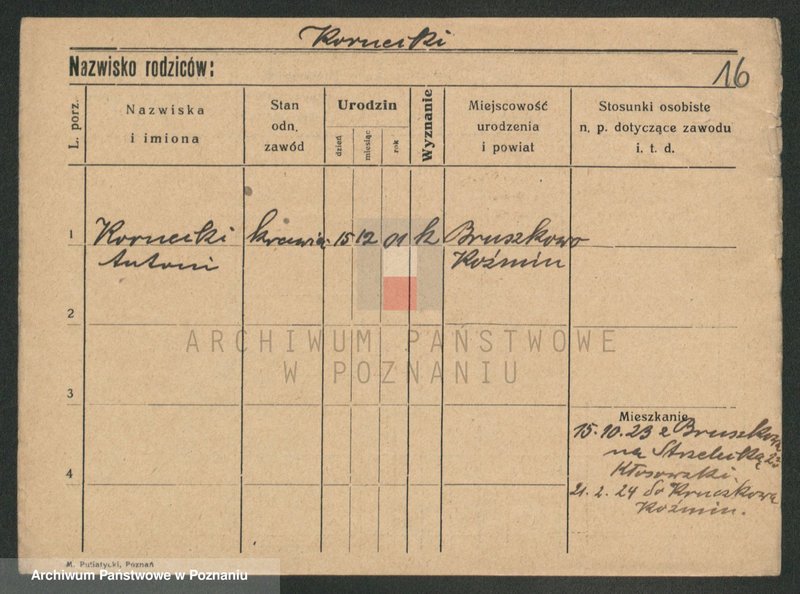 Kornecki
Nazwisko rodziców:
16
L. porz.
Nazwiska
i imiona
Stan
odn.
zawód
Urodzin
dzień
miesiąc
rok
Wyznanie
Miejscowość
urodzenia
i powiat
Stosunki osobiste
n. p. dotyczące zawodu
i. t. d.
1
Kornecki
Antoni
15 12 01 k
Bruszkowo
Koźmin
2
ARCHIWUM PAŃSTWOWE
W POZNANIU
3
Mieszkanie
15.10.23 z
na
Kłosowski.
4
21.2.24 do
Koźmin.
M. Putiatycki, Poznań
Archiwum Państwowe w Poznaniu